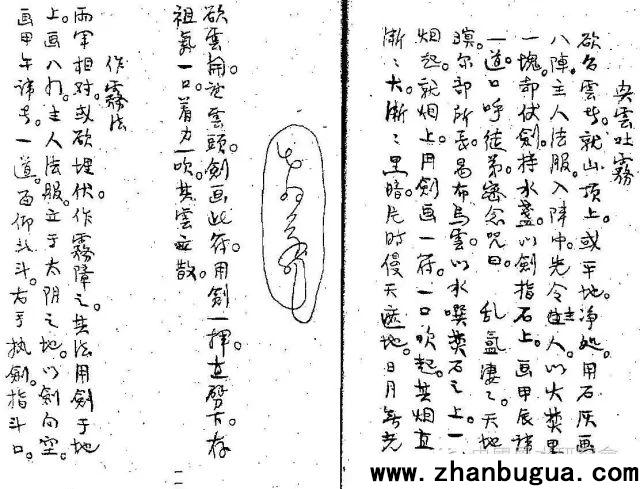 雲吐霧
欲召雲者。就山頂上。或平地。净処。用石灰画
八陣主人法服。入陣中。先令人以火焚黑
一塊。却伏劍。持水盞。以劍指石上。画甲辰諱
一道。口呼徒弟密念咒曰。乱氣凄〻。天地
暝。尔部所長。易布烏雲。以水噀焚石之上。一
烟起。就烟上。用劍画一符。一口吹起。其烟直
渐〻大。渐〻黑暗。片时侵天遮地。日月無光
欲雲開雲頭。劍画此符。用劍一揮。直劈下。存
祖氣一口着力一吹。其雲立散。
作霧法
兩军相对。或欲埋伏。作霧障之。其法用劍于地
上。画八卦。主人法服。立于太阴之地。以劍向空。
画甲午諱。一道。面仰北斗。右手执劍。指斗口。
www.zhanbugua.com